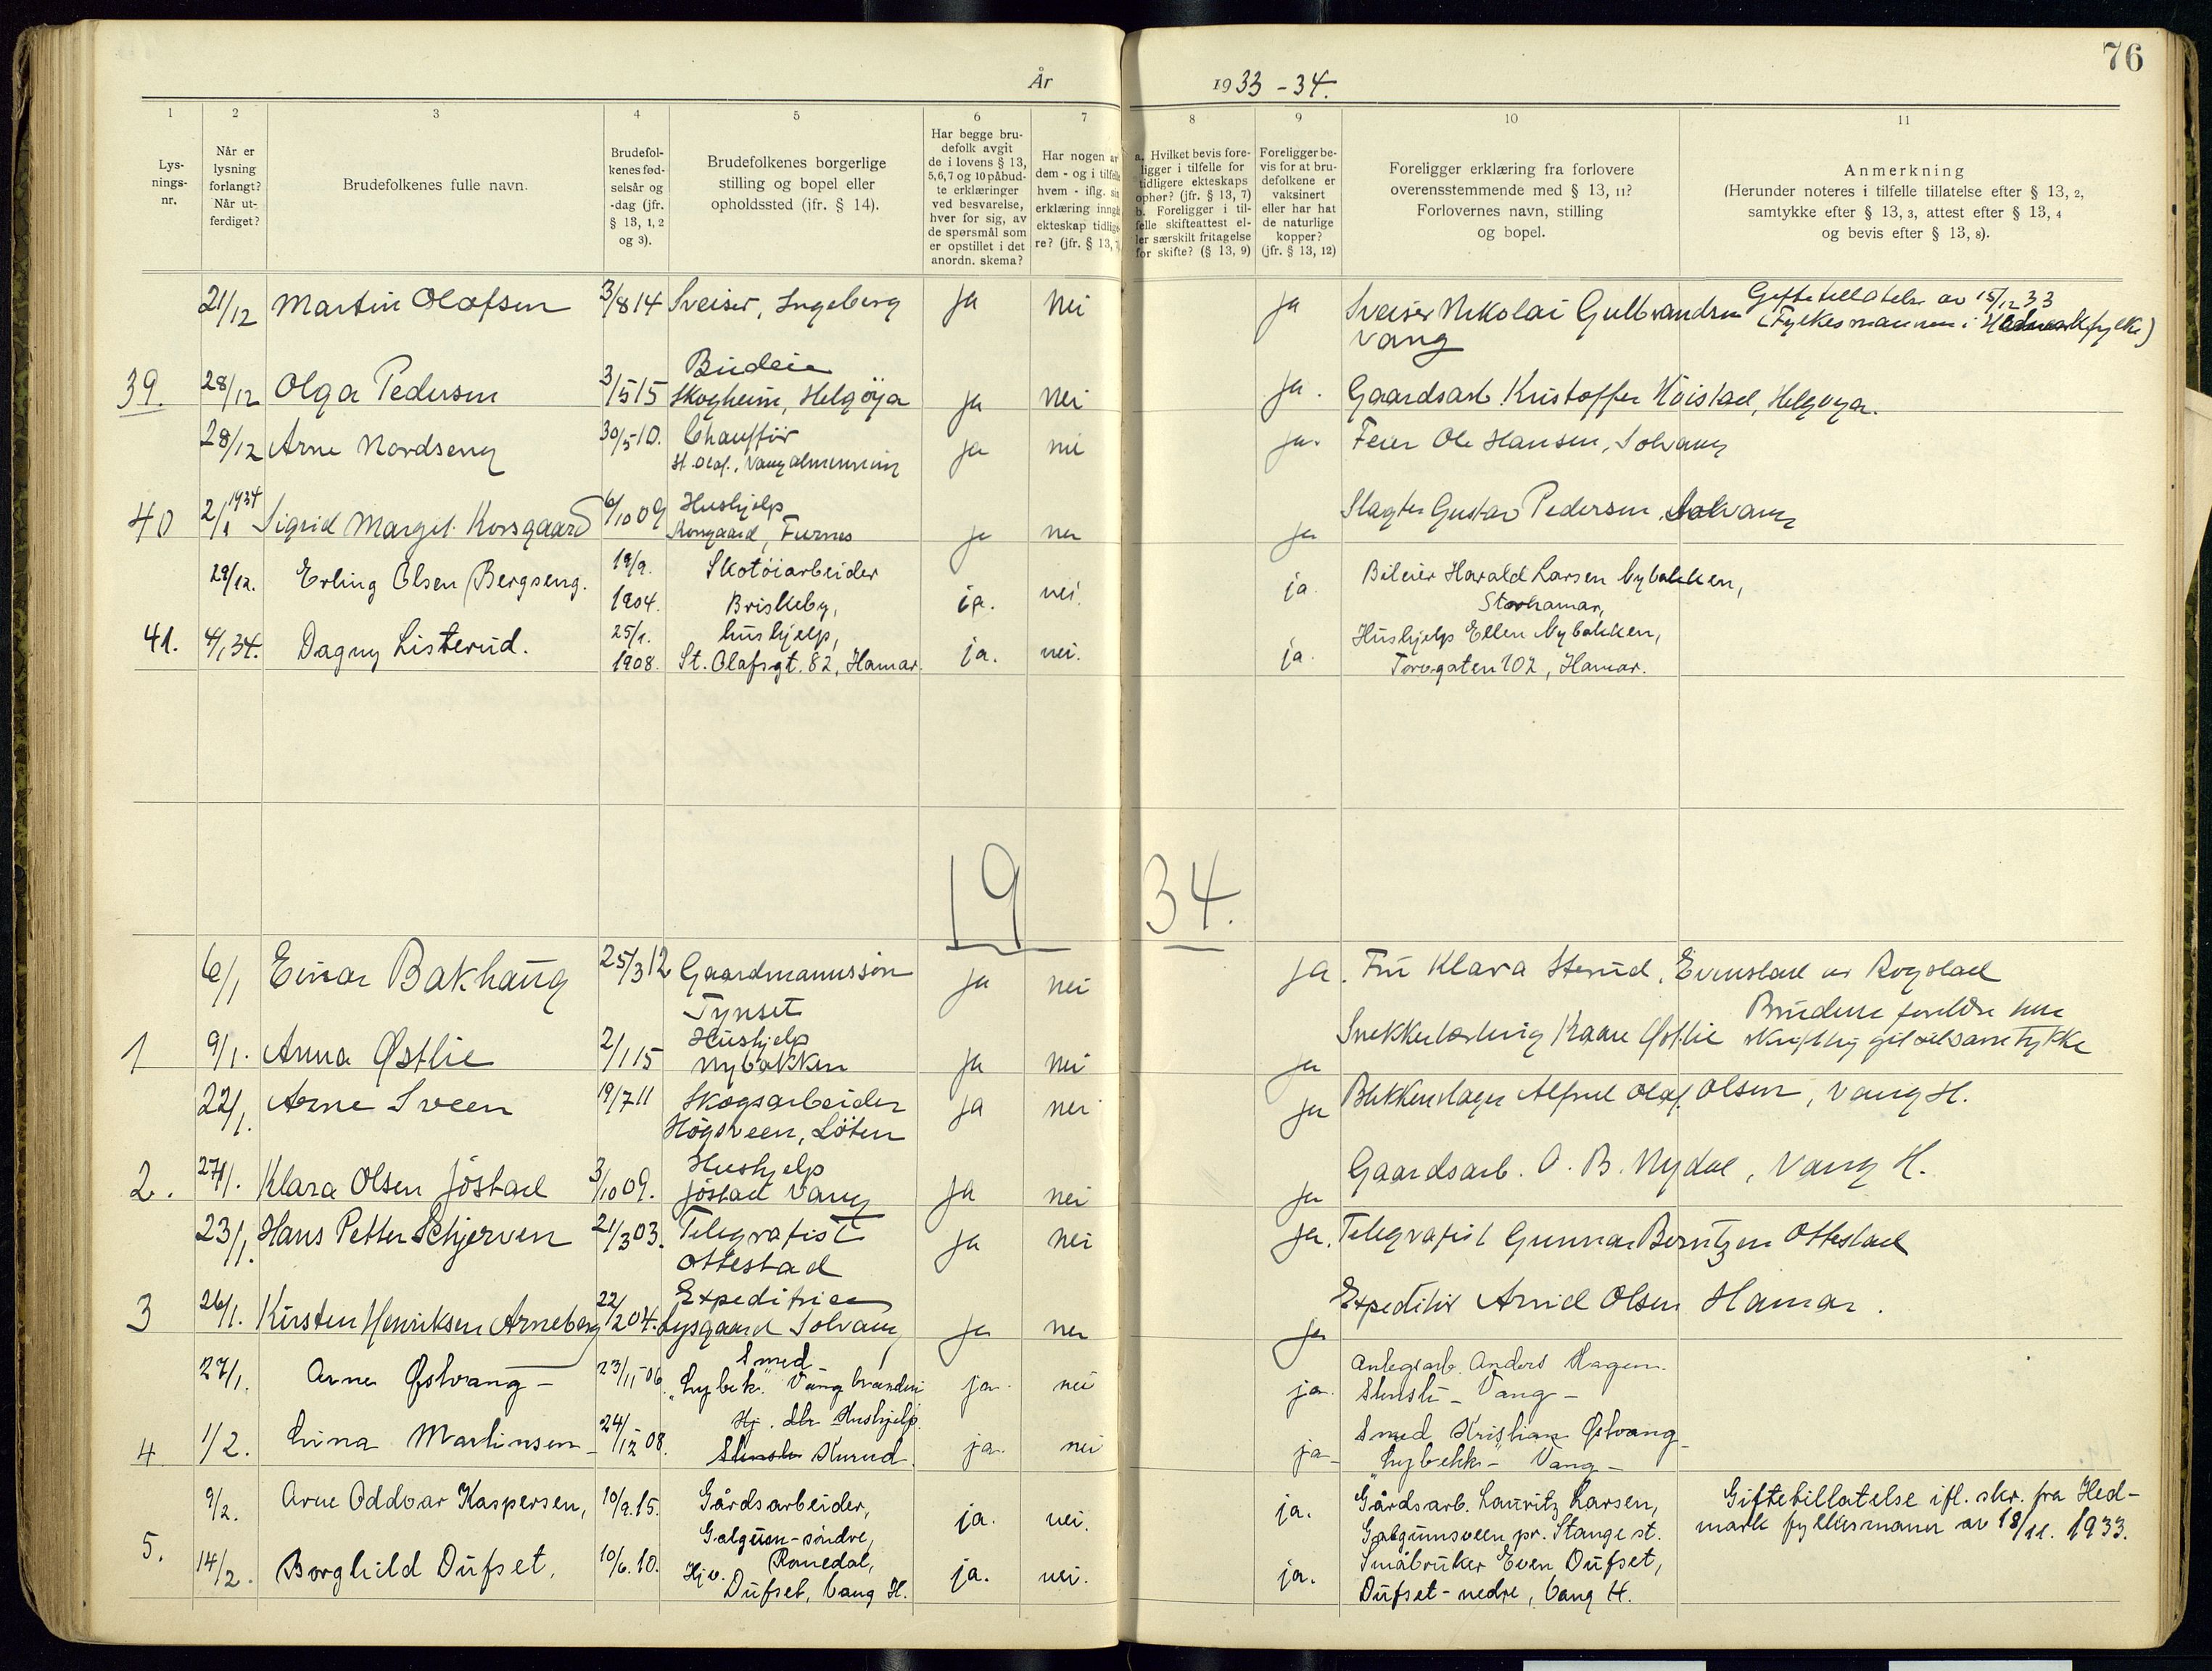 76
År 1933-34.
1 2 3 4 5 6 7 8 9 10 11
Lys-
nings-
nr.
Når er
lysning
forlangt?
Når ut-
ferdiget?
Brudefolkenes fulle navn.
Brudefol-
kenes fød-
selsår og
-dag (jfr.
§ 13, 1, 2
og 3).
Brudefolkenes borgerlige
stilling og bopel eller
opholdssted (jfr. § 14).
Har begge bru-
defolk avgit
de i lovens § 13,
5, 6, 7 og 10 påbud-
te erklæringer
ved besvarelse,
hver for sig, av
de spørsmål som
er opstillet i det
anordn. skema?
Har nogen av
dem - og i tilfelle
hvem - iflg. sin
erklæring inngå
ekteskap tidlige-
re? (jfr. § 13, 7)
a. Hvilket bevis fore-
ligger i tilfelle for
tidligere ekteskaps
ophør? (jfr. § 13, 7)
b. Foreligger i til-
felle skifteattest el-
ler særskilt fritagelse
for skifte? (§ 13, 9)
Foreligger be-
vis for at bru-
defolkene er
vaksinert
eller har hat
de naturlige
kopper?
(jfr. § 13, 12)
Foreligger erklæring fra forlovere
overensstemmende med § 13, 11?
Forlovernes navn, stilling
og bopel.
Anmerkning
(Herunder noteres i tilfelle tillatelse efter § 13, 2,
samtykke efter § 13, 3, attest efter § 13, 4
og bevis efter § 13, 8).
21/12 Martin Olafsen 3/8 14 Sveiser, Ingeberg ja nei ja Sveiser Nikolai Gulbrandsen Giftetillatelse av 15/12 33
Vang (Fylkesmannen i Hedmark fylke)
Budeie
39. 28/12 Olga Pedersen 3/5 15 Skogheim, Helgöya ja nei ja. Gaardsarb. Kristoffer Höistad, Helgöya.
28/12 Arne Nordseng 30/5 10. Chaufför ja nei ja. Feier Ole Hansen, Solvang
H. Olaf., Vang almenning
40 2/1 1934 Sigrid Margit Korsgaard 6/10 09 Hushjelp
Korsgaard, Furnes ja nei ja Slagter Gustav Pedersen, Solvang
29/12. Erling Olsen Bergseng. 19/9. 1904. Skotöiarbeider
Briskeby, ja. nei. ja. Bileier Harald Larsen Nybakken,
Storhamar,
41. 4/1 34. Dagny Listerud. 25/1. 1908. hushjelp,
St. Olafsgt. 82, Hamar. ja. nei. ja. Hushjelp Ellen Nybakken,
Torvgaten 102, Hamar.
1934.
6/1 Einar Bakhaug 25/3 12 Gaardmannssön
Tynset ja nei ja. Fru Klara Sterud, Evenstad av Rogstad
1 9/1. Anna Østlie 2/1 15 Hushjelp
Nybakken ja nei ja Snekkerlærling Kaare Østlie Brudens foreldre
skriftlig samtykke
22/1. Arne Sveen 19/7 11 Skogsarbeider
Högsveen, Löten ja nei ja Blikkenslager Alfred Olaf. Olsen, Vang H.
2. 27/1. Klara Olsen Jöstad 3/10 09. Hushjelp
Jöstad Vang ja nei ja Gaardsarb. O. B. Nydal, Vang H.
23/1. Hans Petter Schjerven 21/3 03. Telegrafist
Ottestad ja nei ja. Telegrafist Gunnar Berntzen Ottestad
3 26/1. Kirsten Henriksen Arneberg 22/2 04. Expeditrice
Lysgaard Solvang ja nei ja Expeditör Arvid Olsen Hamar.
27/1. Arne Østvang - 23/11 06. Smed -
"Lybek." Vang ja. nei ja. Anlegsarb. Anders Hagen.
Stensli - Vang -
4 1/2. Lina Martinsen - 24/12 08. Hj. Hushjelp.
Kurud. ja. nei ja - Smed Kristian Østvang -
"Lybekk" - Vang -
9/2. Arne Oddvar Kaspersen, 10/9. 15. Gårdsarbeider,
Galgum - söndre,
Romedal, ja. nei. ja. Gårdsarb. Lauritz Larsen,
Galgumsveen pr. Stange st. Giftetillatelse ifl. skr. fra Hed-
mark fylkesmann av 18/11. 1933.
5. 14/2. Borghild Dufset. 10/6. 10. Hjv.
Dufset, Vang H. ja. nei. ja. Småbruker Even Dufset,
Dufset - nedre, Vang H.